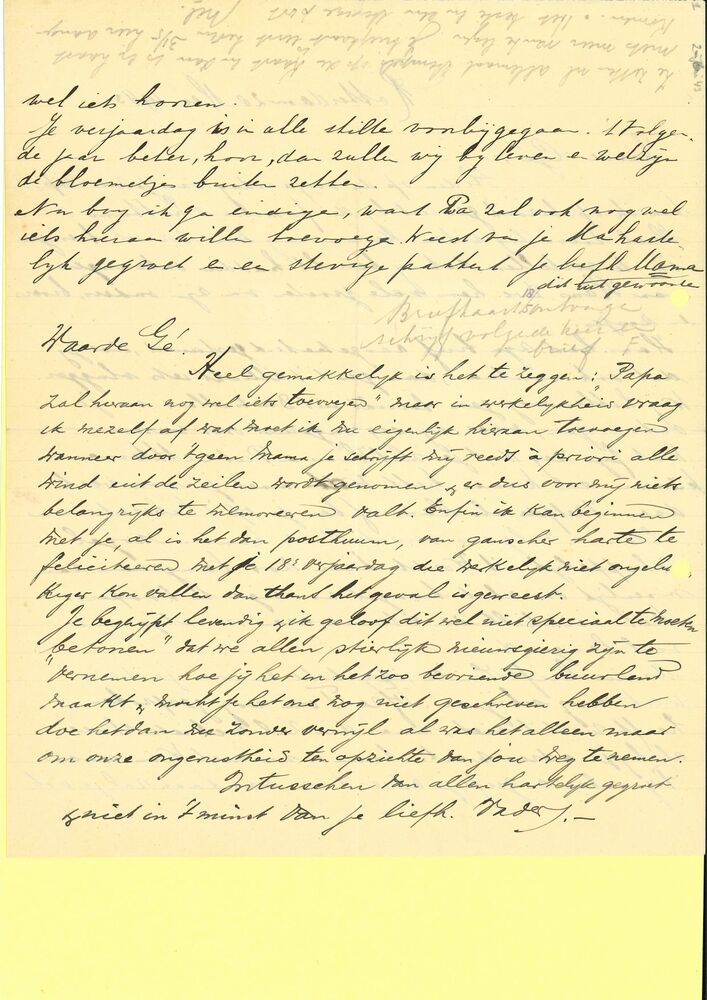 wel iets hooren.
Je verjaardag is in alle stilte voorbijgegaan. 't Volgen-
de jaar beter, hoor, dan zullen wij bij leven en welzijn
de bloemetjes buiten zetten.
Nu boy ik ga eindigen, want Pa zal ook nog wel
iets hieraan willen toevoegen. Weest van je Ma harte-
lijk gegroet en een stevige pakkert je liefh. Mama
dit uit gewoonte
Briefkaart ontvangen
schrijf volgende keer een
brief
Waarde Gé.
Heel gemakkelijk is het te zeggen: "Papa
zal hieraan nog wel iets toevoegen" maar in werkelijkheid vraag
ik mezelf af wat moet ik nu eigenlijk hieraan toevoegen
wanneer door 't geen Mama je schrijft mij reeds à priori alle
wind uit de zeilen wordt genomen & er dus voor mij niets
belangrijks te memoreeren valt. Enfin ik kan beginnen
met je, al is het dan posthuum, van ganscher harte te
feliciteeren met je 18e verjaardag die werkelijk niet ongeluk-
kiger kon vallen dan thans het geval is geweest.
Je begrijpt levendig & ik geloof dit wel niet speciaal te moeten
"betonen" dat we allen stierlijk nieuwsgierig zijn te
vernemen hoe jij het in het zoo bevriende buurland
maakt & mocht je het ons nog niet geschreven hebben
doe het dan nu zonder verwijl al was het alleen maar
om onze ongerustheid ten opzichte van jou weg te nemen.
Intusschen van allen hartelijk gegroet
& niet in 't minst van je liefh. Vader.